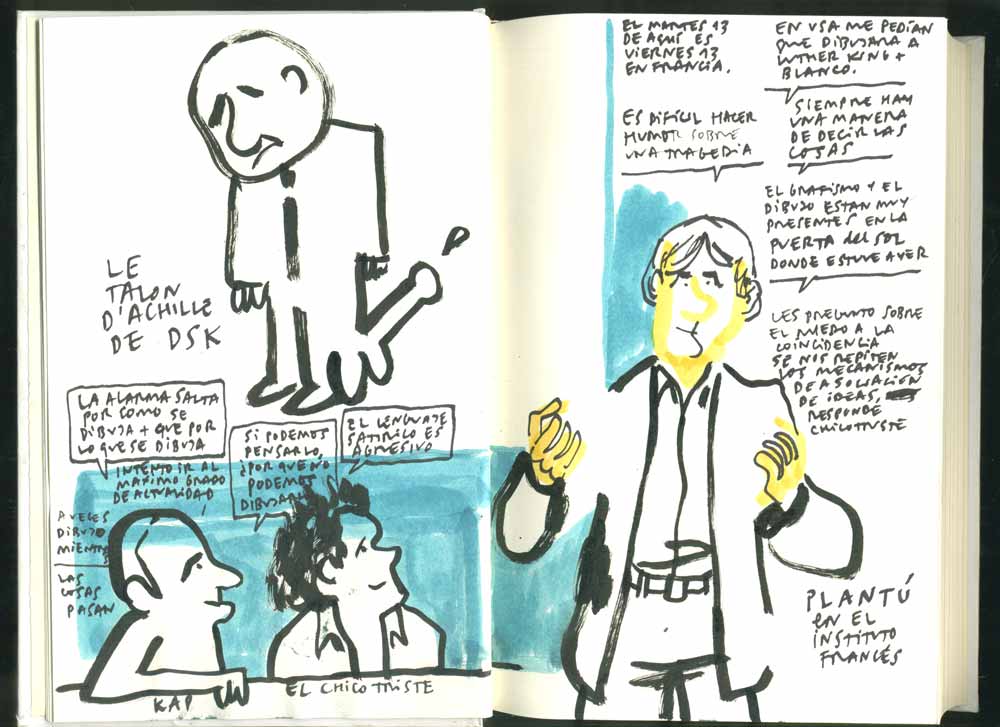 LE
TALON
D'ACHILLE
DE DSK
LA ALARMA SALTA
POR COMO SE
DIBUJA + QUE POR
LO QUE SE DIBUJA
INTENTO IR AL
MAXIMO GRADO
DE ACTUALIDAD
A VECES
DIBUJO
MIENTRAS
LAS
COSAS
PASAN
SI PODEMOS
PENSARLO,
¿POR QUE NO
PODEMOS
DIBUJARLO
EL LENGUAJE
SATIRICO ES
AGRESIVO
KAP
EL CHICO TRISTE
EL MARTES 13
DE AQUÍ ES
VIERNES 13
EN FRANCIA.
ES DIFÍCIL HACER
HUMOR SOBRE
UNA TRAGEDIA
EN USA ME PEDÍAN
QUE DIBUJARA A
LUTHER KING +
BLANCO.
SIEMPRE HAY
UNA MANERA
DE DECIR LAS
COSAS
EL GRAFISMO Y EL
DIBUJO ESTAN MUY
PRESENTES EN LA
PUERTA del SOL
DONDE ESTUVE AYER
LES PREGUNTO SOBRE
EL MIEDO A LA
COINCIDENCIA
SE NOS REPITEN
LOS MECANISMOS
DE ASOCIACIÓN
DE IDEAS,
RESPONDE
CHICOTRISTE
PLANTÚ
en EL
INSTITUTO
FRANCÉS